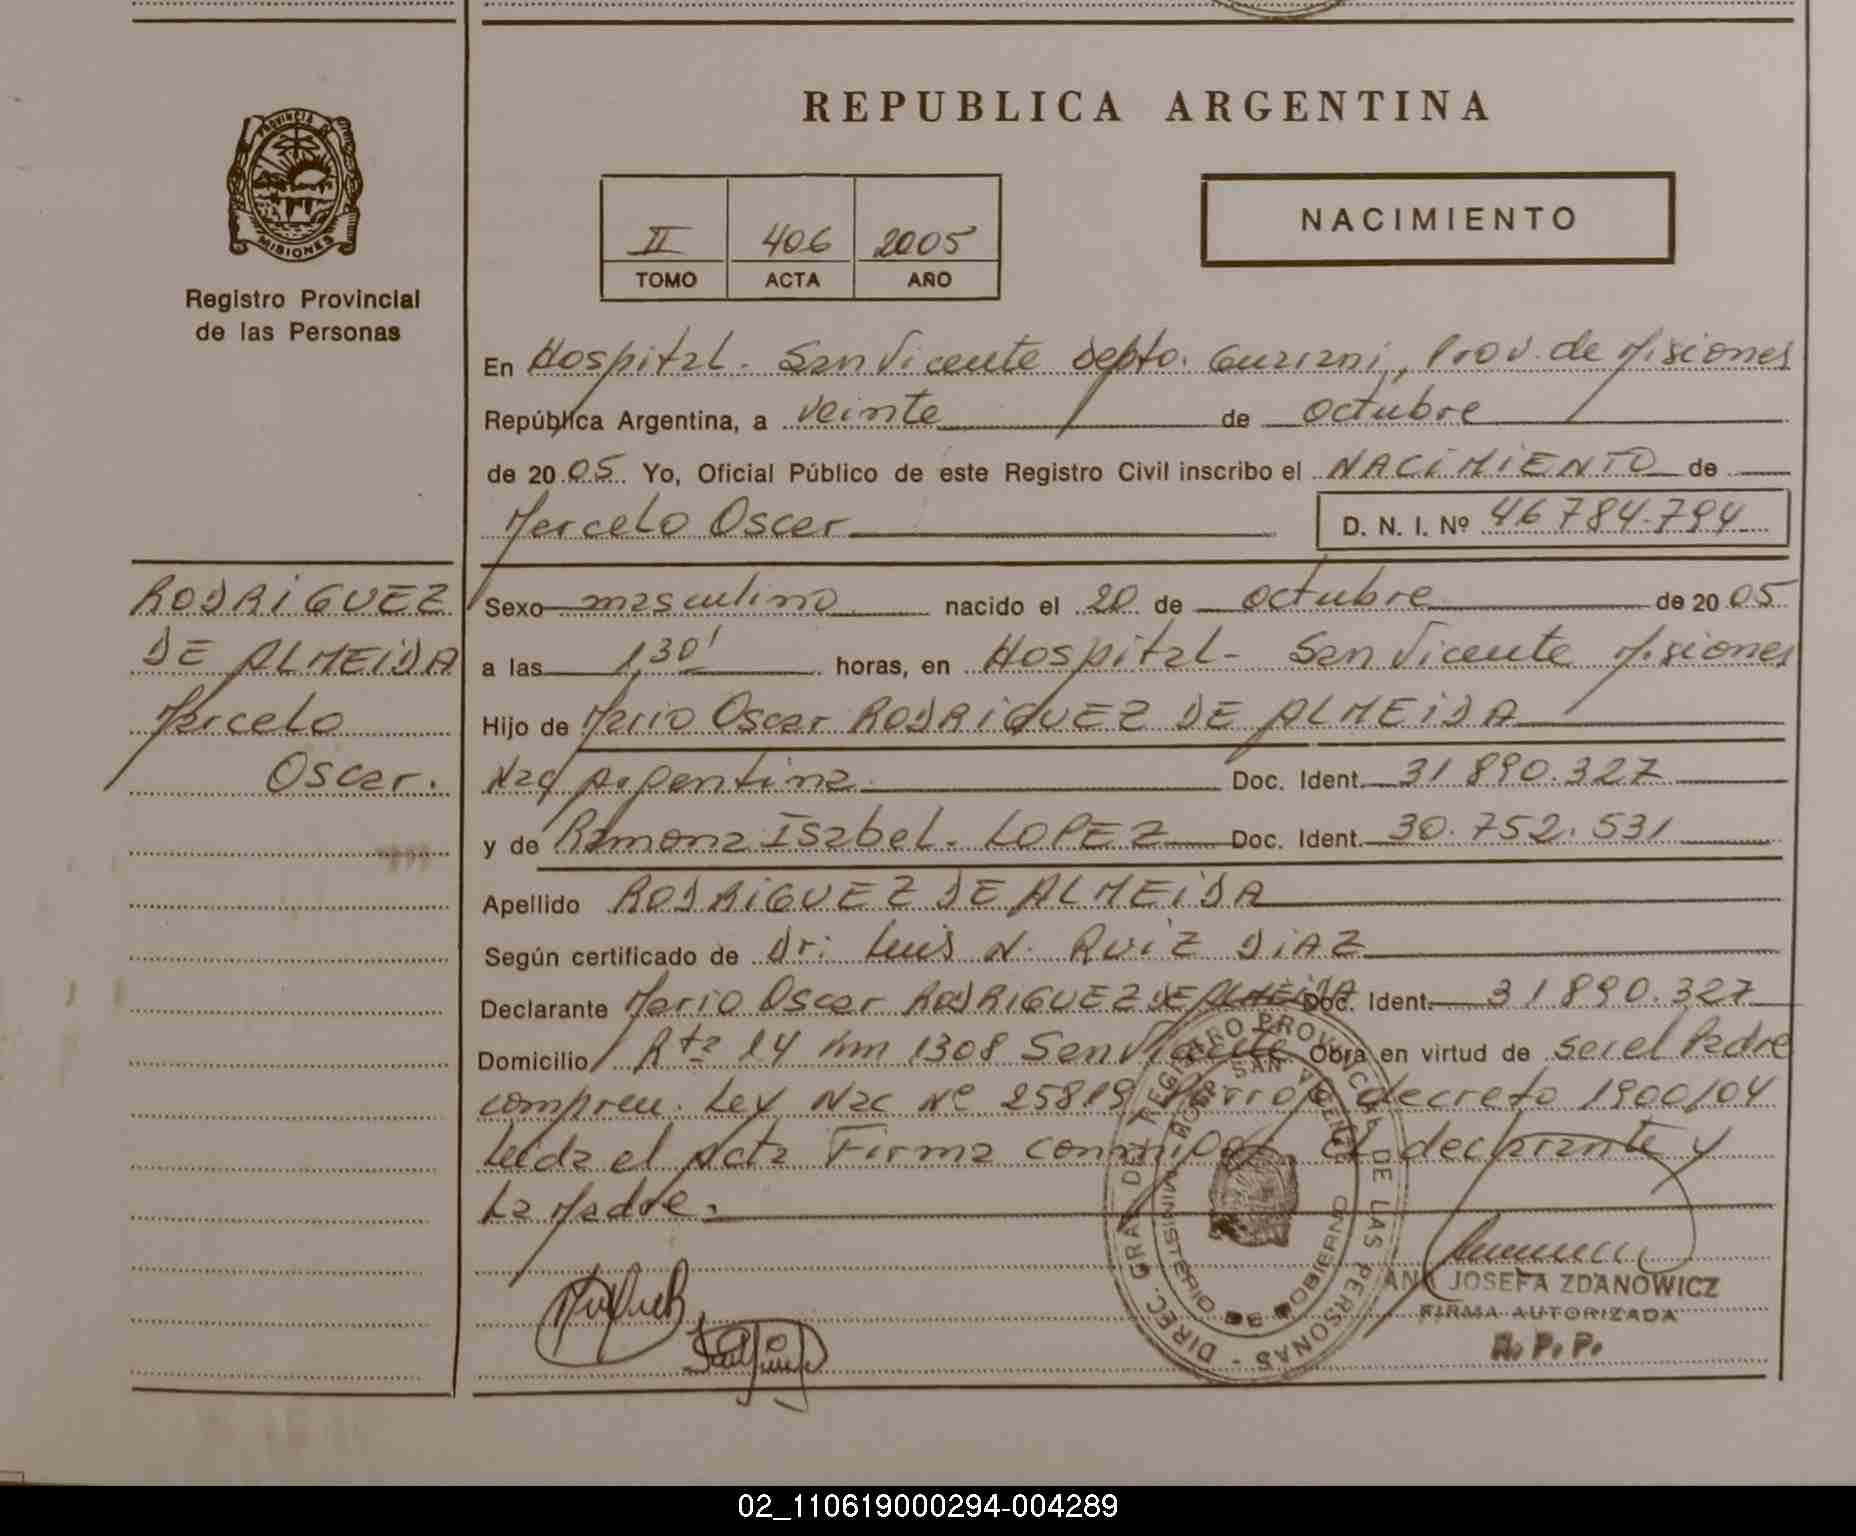 REPUBLICA ARGENTINA
PROVINCIA DE
MISIONES
Registro Provincial
de las Personas
II 406 2005
TOMO ACTA AÑO
NACIMIENTO
En Hospital. San Vicente Depto. Guarani, Prov. de Misiones
República Argentina, a veinte de octubre
de 2005 Yo, Oficial Público de este Registro Civil inscribo el NACIMIENTO de
Marcelo Oscar D. N. I. Nº 46784.794
RODRIGUEZ
DE ALMEIDA
Marcelo
Oscar.
Sexo masculino nacido el 20 de octubre de 2005
a las 1,30' horas, en Hospital - San Vicente Misiones
Hijo de Mario Oscar RODRIGUEZ DE ALMEIDA
Nac Argentina Doc. Ident. 31890.327
y de Ramona Isabel. LOPEZ Doc. Ident. 30.752.531
Apellido RODRIGUEZ DE ALMEIDA
Según certificado de Dr: Luis N. RUIZ DIAZ
Declarante Mario Oscar RODRIGUEZ DE ALMEIDA Doc. Ident. 31890.327
Domicilio Rta 14 Km 1308 San Vicente Obra en virtud de ser el Padre
compren. Ley Nac Nº 25819 Parrafo decreto 1900/04
Leida el Acta Firma conmigo El declarante y
La Madre.
DIREC. GRAL. DEL REGISTRO PROVINCIAL DE LAS PERSONAS -
SAN VICENTE
MINISTERIO DE GOBIERNO
ANA JOSEFA ZDANOWICZ
FIRMA AUTORIZADA
R. P. P.
02_110619000294-004289